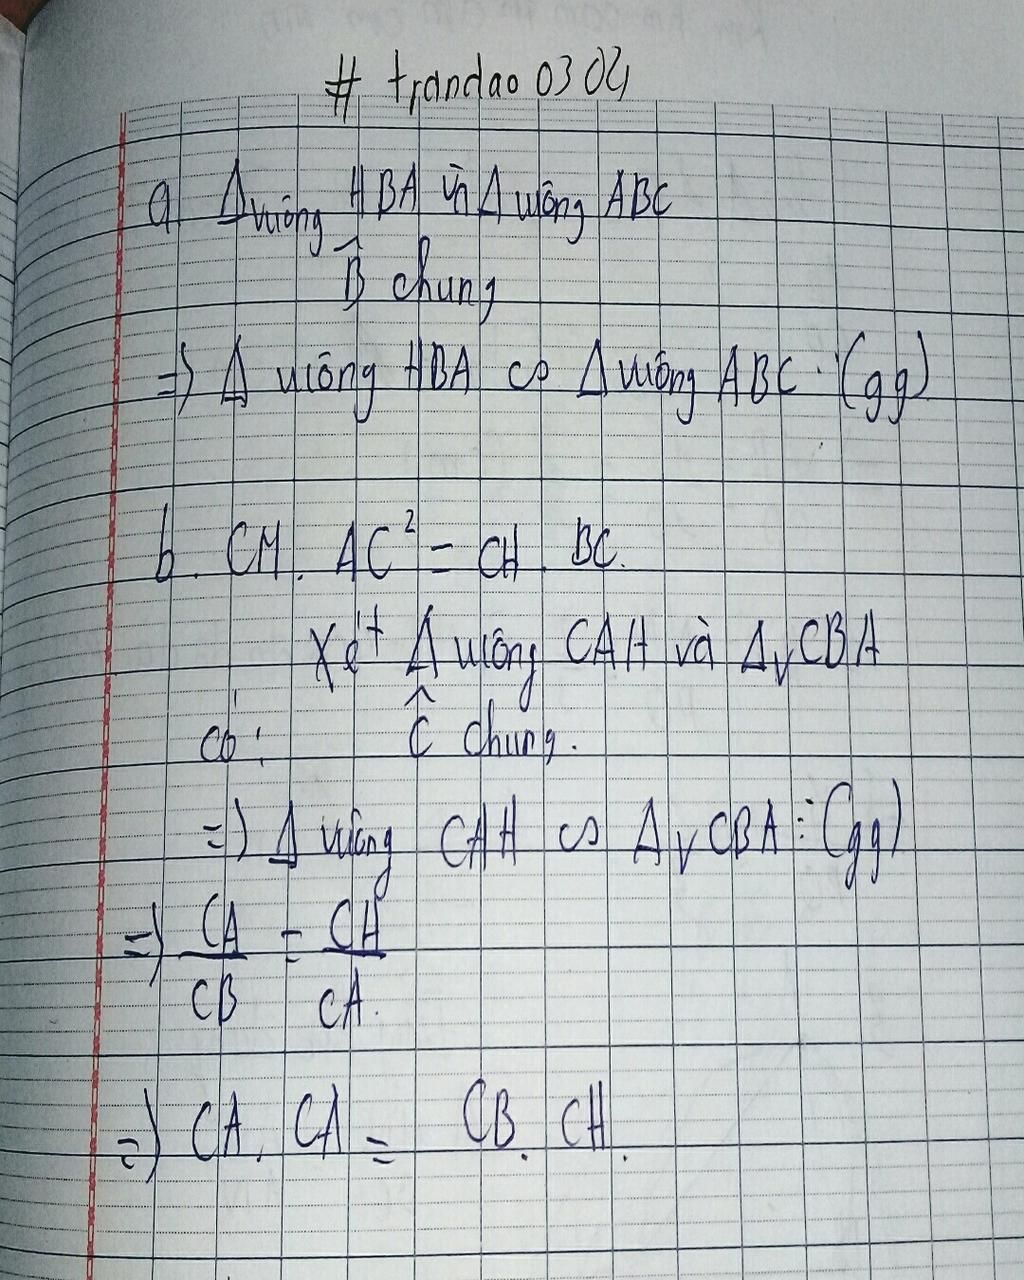 # trandao 0304
a) Δ vuông HBA và Δ vuông ABC
B̂ chung
=) Δ vuông HBA ∽ Δ vuông ABC. (gg)
b. CM. AC² = CH. BC.
Xét Δ vuông CAH và Δv CBA
có: Ĉ chung.
=) Δ vuông CAH ∽ Δv CBA: (gg)
=) CA/CB = CH/CA.
=) CA. CA = CB. CH.